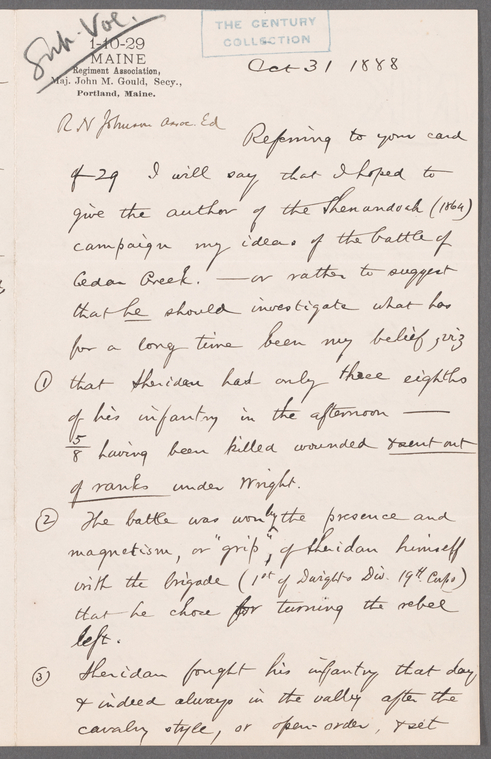 Sub. Vol.
THE CENTURY
COLLECTION
1-10-29
MAINE
Regiment Association,
Maj. John M. Gould, Secy.,
Portland, Maine.
Oct 31 1888
R N Johnson Assoc Ed
Referring to your card
of 29 I will say that I hoped to
give the author of the Shenandoah (1864)
campaign my ideas of the battle of
Cedar Creek. — or rather to suggest
that he should investigate what has
for a long time been my belief, viz
① that Sheridan had only three eighths
of his infantry in the afternoon —
5/8 having been killed wounded & went out
of ranks under Wright.
② The battle was won by the presence and
magnetism, or "grip", of Sheridan himself
with the brigade (1st of Dwights Div. 19th Corps)
that he chose for turning the rebel
left.
③ Sheridan fought his infantry that day
& indeed always in the valley after the
cavalry style, or open-order, & set